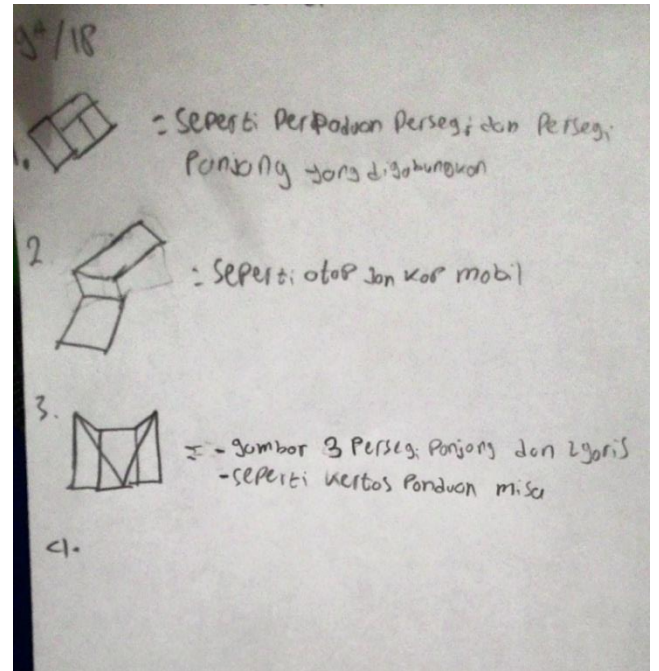 9⁴/18
1. = Seperti Perpaduan Persegi dan Persegi
Panjang yang digabungkan
2 = Seperti atap dan kap mobil
3. = - gambar 3 Persegi Panjang dan 2 garis
- seperti kertas Panduan misa
4.